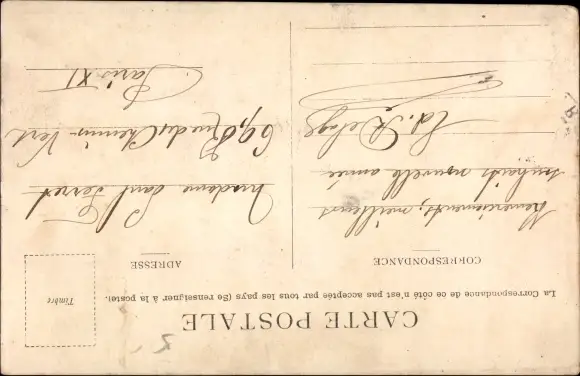 CARTE POSTALE
La Correspondance de ce côté n'est pas acceptée par tous les pays (Se renseigner à la poste).
CORRESPONDANCE
Remerciements, meilleurs
souhaits nouvelle année
Ed. Delage
ADRESSE
Timbre
Madame Paul Ferret
69, Rue du Chemin-Vert
Paris XI